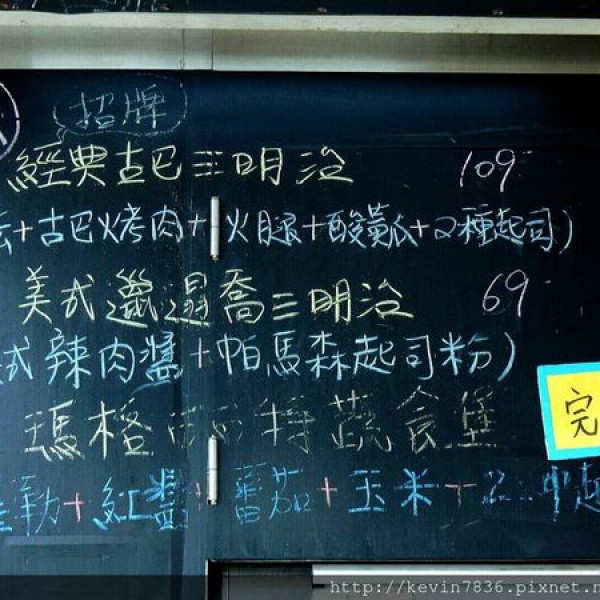 招牌
經典古巴三明治 109
+古巴烤肉+火腿+酸黃瓜+2種起司)
美式邋遢喬三明治 69
式辣肉醬+帕馬森起司粉)
完
瑪格 特蔬食堡
勒+紅醬+蕃茄+玉米+
http://kevin7836.pixnet.n